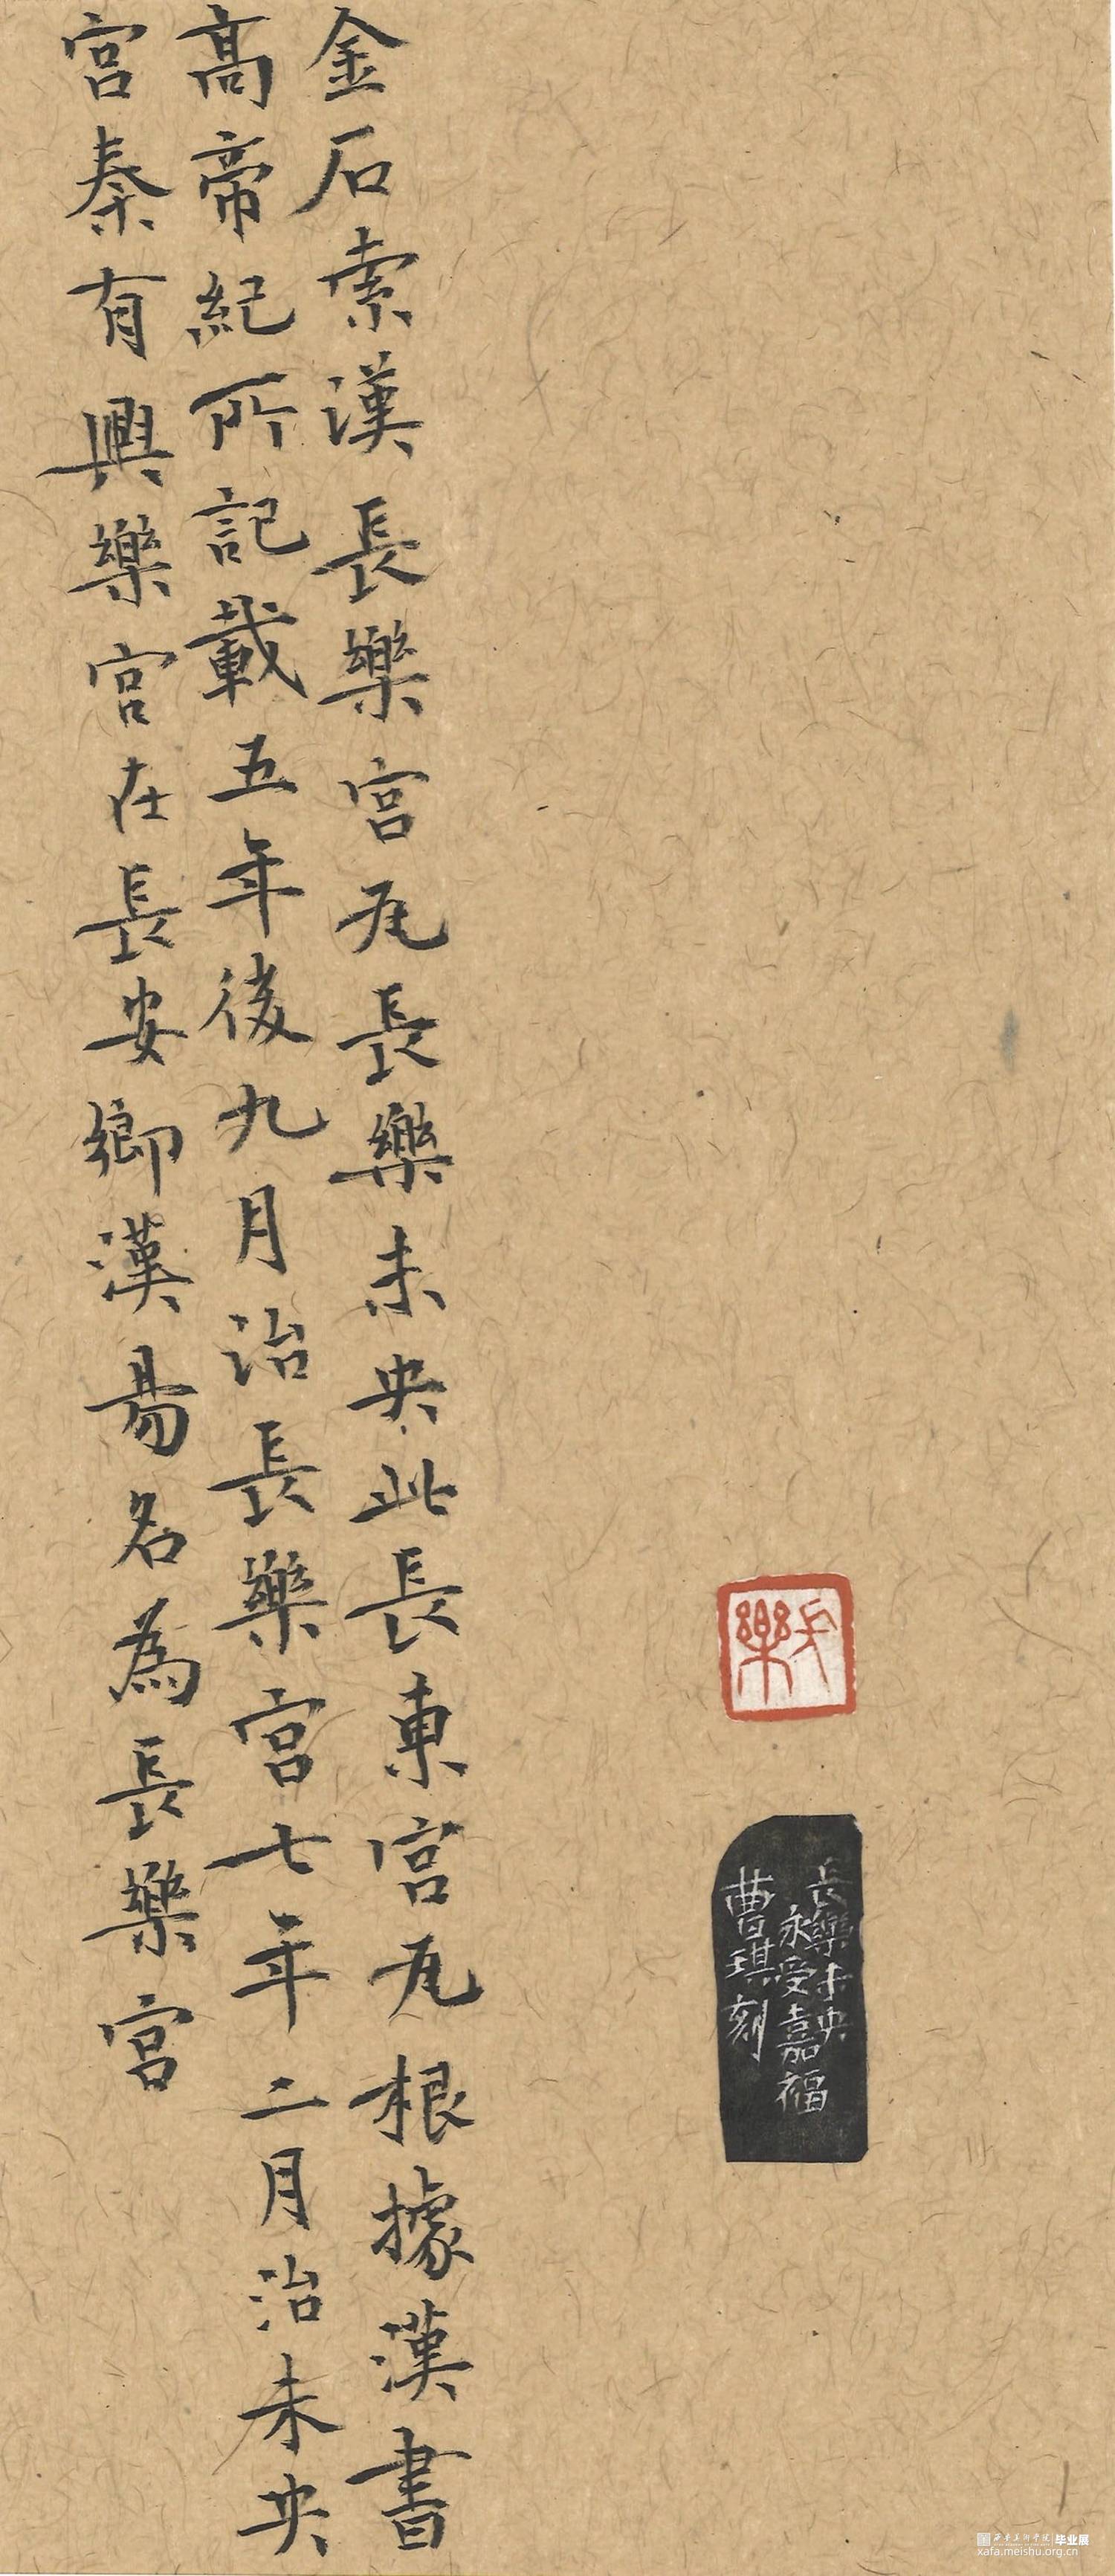 金石索漢長樂宮瓦長樂未央此長東宮瓦根據漢書
高帝紀所記載五年後九月治長樂宮七年二月治未央
宮秦有興樂宮在長安鄉漢易名為長樂宮
長樂未央
永受嘉福
曹琪刻
西安美術學院 毕业展
xafa.meishu.org.cn